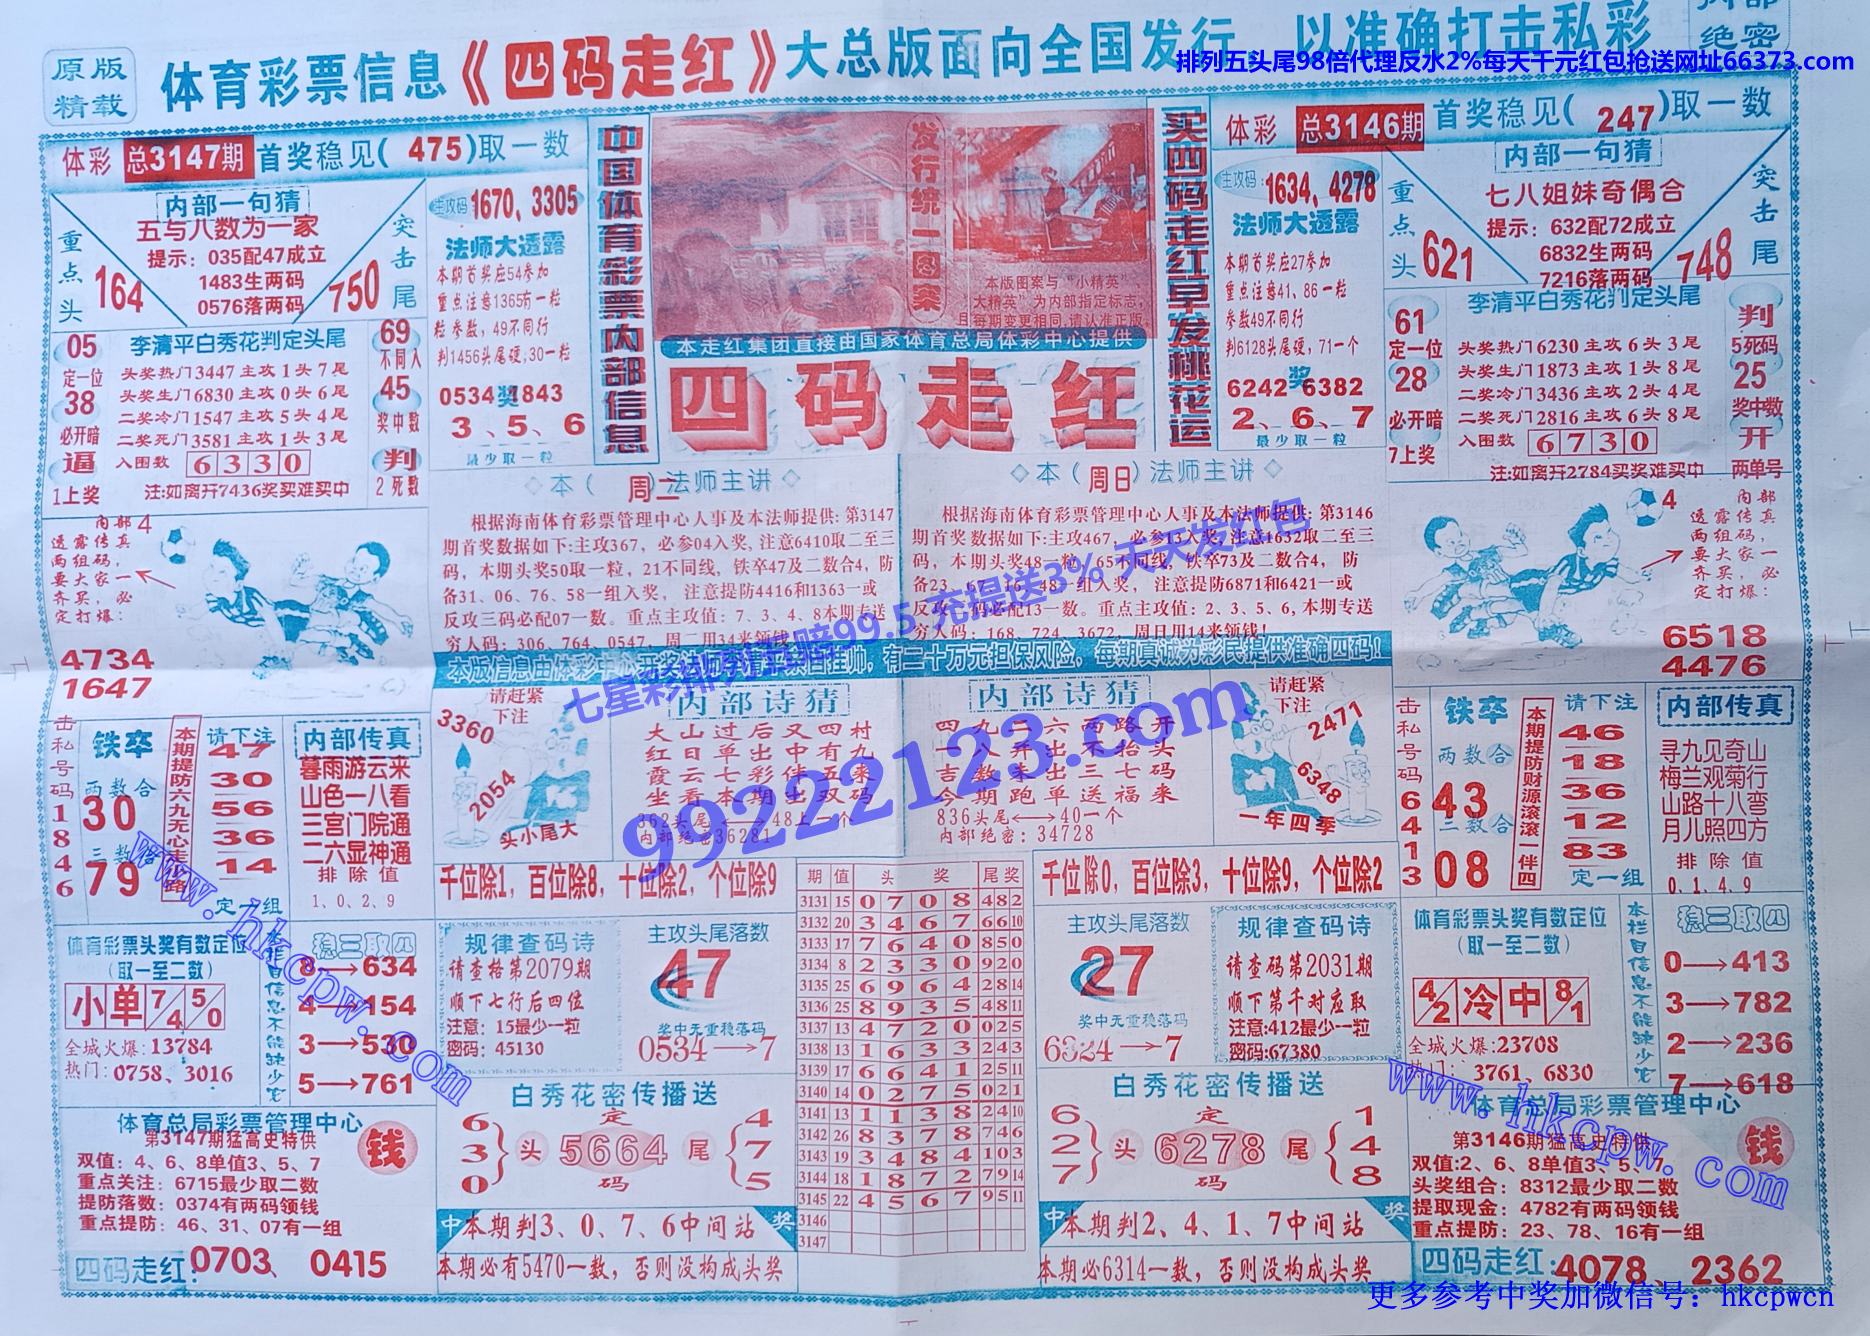 原版
精载
体育彩票信息《四码走红》大总版面向全国发行，以准确打击私彩
绝密
排列五头尾98倍代理反水2%每天千元红包抢送网址66373.com
体彩 总3147期 首奖稳见(475)取一数
内部一句猜
五与八数为一家
提示：035配47成立
1483生两码
0576落两码
重点头
164
突击尾
750
主攻码 1670，3305
法师大透露
本期首奖应54参加
重点注意1365防一粒
粒参数，49不同行
判1456头尾硬，30一粒
0534奖1843
3、5、6
最少取一粒
05
定一位
38
必开暗
逼
1上奖
李清平白秀花判定头尾
头奖热门3447主攻1头7尾
头奖生门6830主攻0头6尾
二奖冷门1547主攻5头4尾
二奖死门3581主攻1头3尾
入围数 6330
注：如离开7436奖买难买中
69
不同入
45
奖中数
判
2死数
中国体育彩票内部信息
发行统一图案
本版图案与“小精英”、
大精英”为内部指定标志，
且每期变更相同，请认准正版
本走红集团直接由国家体育总局体彩中心提供
四码走红
买四码走红早发桃花运
体彩 总3146期 首奖稳见(247)取一数
主攻码：1634，4278
法师大透露
本期首奖应27参加
重点注意41、86一粒
参数49不同行
判6128头尾硬，71一个
6242奖6382
2、6、7
最少取一粒
内部一句猜
七八姐妹奇偶合
提示：632配72成立
6832生两码
7216落两码
重点头
621
突击尾
748
61
定一位
28
必开暗
7上奖
李清平白秀花判定头尾
头奖热门6230主攻6头3尾
头奖生门1873主攻1头8尾
二奖冷门3436主攻2头4尾
二奖死门2816主攻6头8尾
入围数 6730
注：如离开2784买奖难买中
判
5死码
25
奖中数
开
两单号
内部4
透露传真
两组码，
要大家一
齐买，必
定打爆：
4734
1647
◇本（周二）法师主讲◇
根据海南体育彩票管理中心人事及本法师提供：第3147
期首奖数据如下：主攻367，必参04入奖，注意6410取二至三
码，本期头奖50取一粒，21不同线，铁卒47及二数合4，防
备31、06、76、58一组入奖，注意提防4416和1363一或
反攻三码必配07一数。重点主攻值：7、3、4、8本期专送
穷人码：306、764、0547，周二用34来领钱
◇本（周日）法师主讲◇
根据海南体育彩票管理中心人事及本法师提供：第3146
期首奖数据如下：主攻467，必参13入奖，注意1632取二至三
码，本期头奖48一粒，65不同线，铁卒73及二数合4，防
备23、67、16、48一组入奖，注意提防6871和6421一或
反攻二码必配13一数。重点主攻值：2、3、5、6，本期专送
穷人码：168、724、3672，周日用14来领钱！
4 内部
透露传真
两组码，
要大家一
齐买，必
定打爆：
6518
4476
有二十万元担保风险，每期真诚为彩民提供准确四码！
七星彩排列五赔99.5 充提送3% 天天发红包
99222123.com
击私号码1846
铁卒
两数合
30
三数合
79
本期提防六九无心走小路
请下注
47
30
56
36
14
定一组
内部传真
暮雨游云来
山色一八看
三宫门院通
二六显神通
排除值
1、0、2、9
请赶紧
下注
3360
2054
头小尾大
内部诗猜
大山过后又四村
红日单出中有九
霞云七彩伴五来
坐看本期出双码
362头尾⟷48上一个
内部绝密36281
内部诗猜
四九二六两路开
一八开出不抬头
吉数未出三七码
今期跑单送福来
836头尾⟷40一个
内部绝密：34728
请赶紧
下注
2471
6348
一年四季
击私号码6413
铁卒
两数合
43
三数合
08
本期提防财源滚滚一伴四
请下注
46
18
36
12
83
定一组
内部传真
寻九见奇山
梅兰观菊行
山路十八弯
月儿照四方
排除值
0、1、4、9
千位除1，百位除8，十位除2，个位除9
千位除0，百位除3，十位除9，个位除2
体育彩票头奖有数定位
(取一至二数)
小单7/4 5/0
全城火爆：13784
热门：0758、3016
本栏目信息不能缺少它
稳三取四
8→634
4→154
3→530
5→761
规律查码诗
请查格第2079期
顺下七行后四位
注意：15最少一粒
密码：45130
主攻头尾落数
47
奖中无重稳落码
0534→7
期 值 头 奖 尾奖
3131 15 0 7 0 8 482
3132 20 3 4 6 7 6610
3133 17 7 6 4 0 850
3134 8 2 3 3 0 920
3135 25 6 9 6 4 2814
3136 25 8 9 3 5 4811
3137 13 4 7 2 0 025
3138 13 1 6 3 3 243
3139 17 6 6 4 1 2511
3140 14 0 2 7 5 021
3141 13 1 1 3 8 2410
3142 26 8 3 7 8 746
3143 19 3 4 8 4 103
3144 18 1 8 7 2 7914
3145 22 4 5 6 7 9511
3146
3147
主攻头尾落数
27
奖中无重稳落码
6324→7
规律查码诗
请查码第2031期
顺下第千对应取
注意：412最少一粒
密码：67380
体育彩票头奖有数定位
(取一至二数)
4/2冷中8/1
全城火爆：23708
热门：3761、6830
本栏目信息不能缺少它
稳三取四
0→413
3→782
2→236
7→618
体育总局彩票管理中心
第3147期猛高史特供
钱
双值：4、6、8单值3、5、7
重点关注：6715最少取二数
提防落数：0374有两码领钱
重点提防：46、31、07有一组
四码走红：0703、0415
白秀花密传播送
6 3 0 头 定 5664 码 尾 4 7 5
中 本期判3、0、7、6中间站 奖
本期必有5470一数，否则没构成头奖
白秀花密传播送
6 2 7 头 定 6278 码 尾 1 4 8
中 本期判2、4、1、7中间站 奖
本期必6314一数，否则没构成头奖
体育总局彩票管理中心
第3146期猛高史特供
钱
双值：2、6、8单值3、5、7
头奖组合：8312最少取二数
提取现金：4782有两码领钱
重点提防：23、78、16有一组
四码走红：4078、2362
www.hkcpw.com
www.hkcpw.com
更多参考中奖加微信号：hkcpwcn